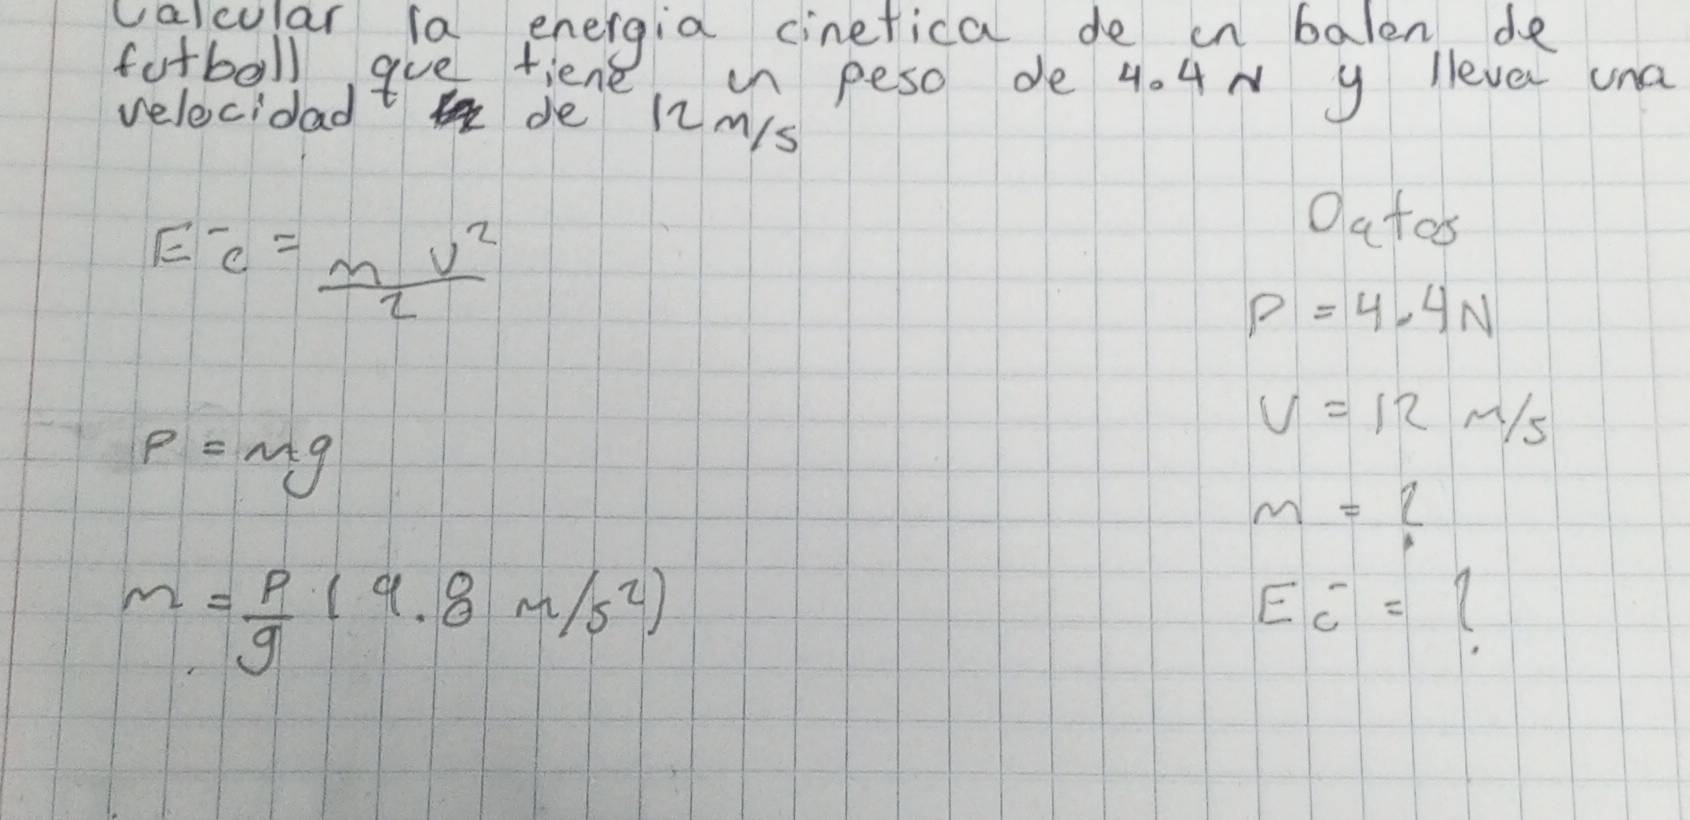 Calcular la energia cinetica de un balon de
futball que tiene un peso de 4.4 N y lleva una
velocidad de 12 m/s
Datos
Ec = m v²/2
P = 4.4 N
V = 12 m/s
P = mg
m = ?
m = P/g (9.8 m/s²)
Ec = ?